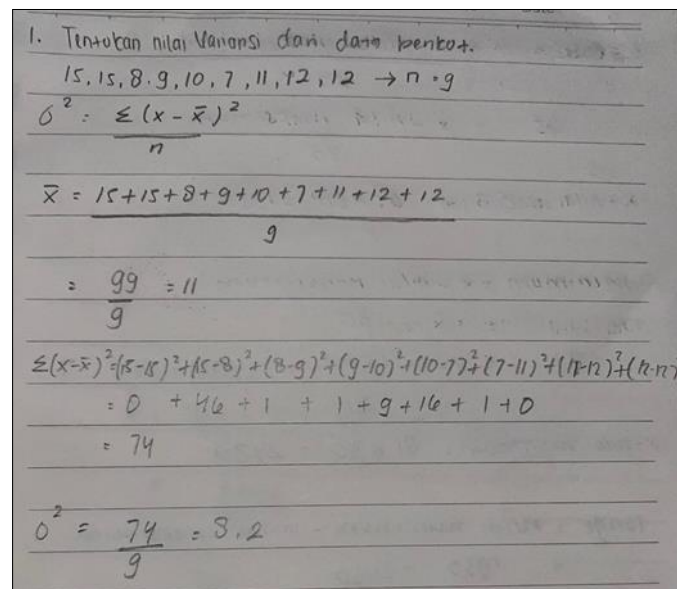 1. Tentukan nilai Variansi dari data berikot.
15, 15, 8. 9, 10, 7, 11, 12, 12 → n = 9
σ² = Σ (x - x̄)²
n
x̄ = 15+15+8+9+10+7+11+12+12
9
= 99 = 11
9
Σ(x-x̄)²=(15-15)²+(15-8)²+(8-9)²+(9-10)²+(10-7)²+(7-11)²+(11-12)²+(12-12)
= 0 + 46 + 1 + 1 + 9 + 16 + 1 + 0
= 74
σ² = 74 = 8.2
9